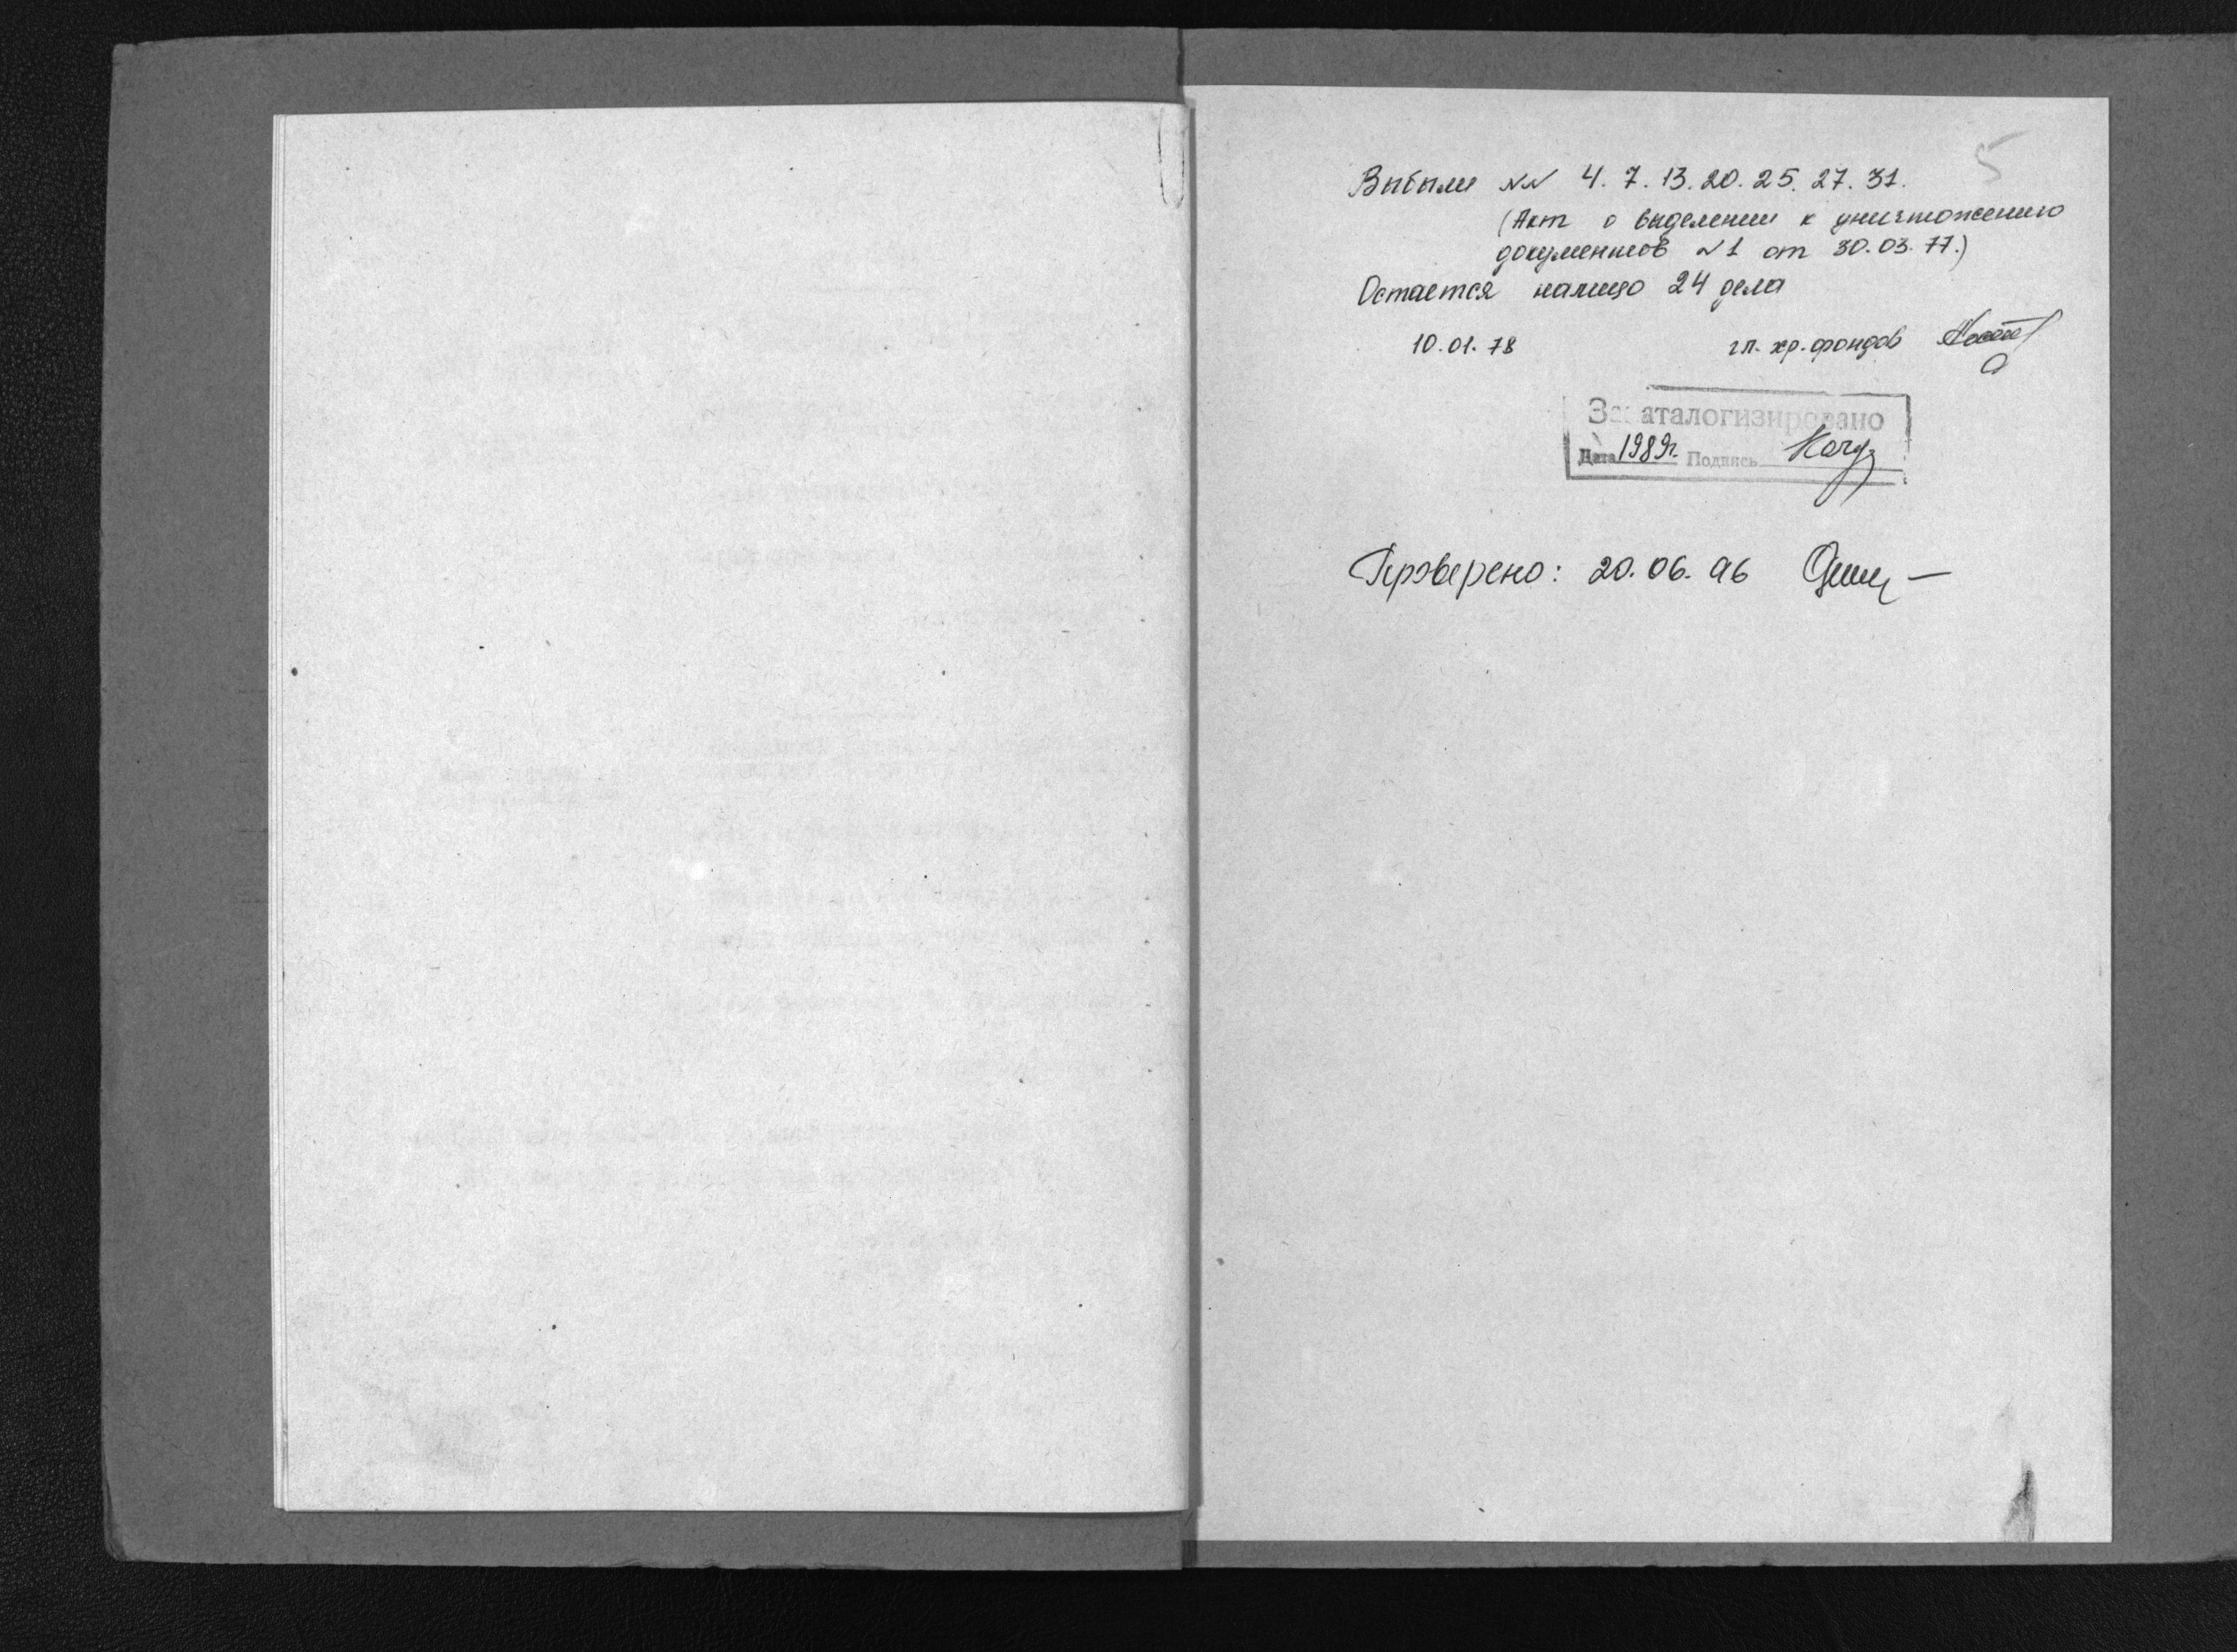 5
Выбыли NN 4. 7. 13. 20. 25. 27. 31.
(Акт о выделении к уничтожению
документов N1 от 30.03.77.)
Остается налицо 24 дела
10.01.78 гл. хр. фондов
Закаталогизировано
Дата 1989г. Подпись
Проверено: 20.06.96